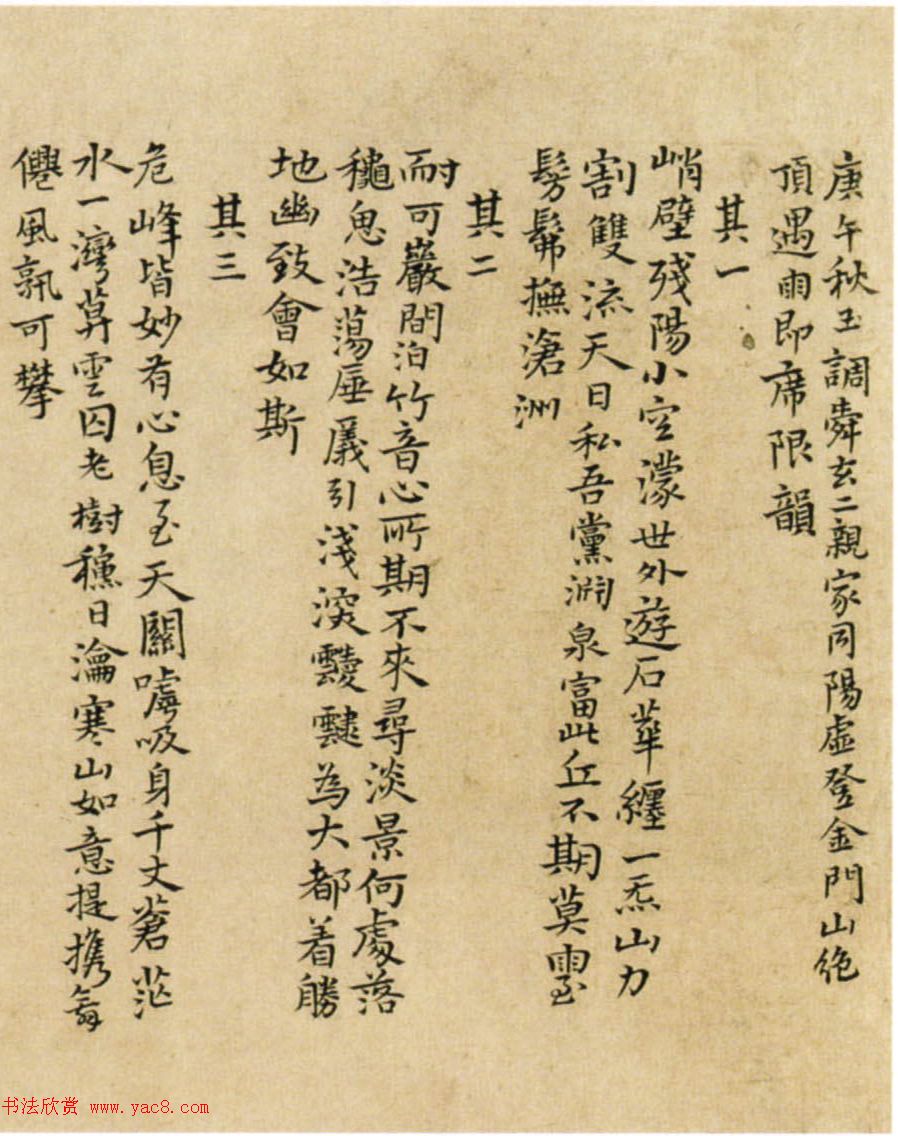 庚午秋玉調舜玄二親家同陽虛登金門山絶
頂遇雨即席限韻
其一
峭壁殘陽小空濛世外遊石華纏一炁山力
割雙流天日私吾黨淵泉富此丘不期莫雨至
髣髴撫滄洲
其二
耐可巖間泊竹音心所期不來尋淡景何處落
龝思浩蕩厜㕒引淺深靉靆為大都着勝
地幽致會如斯
其三
危峰皆妙有心息至天關噓吸身千丈蒼茫
水一灣雲囚老樹日瀹寒山如意提攜
僊風孰可攀
书法欣赏 www.yac8.com